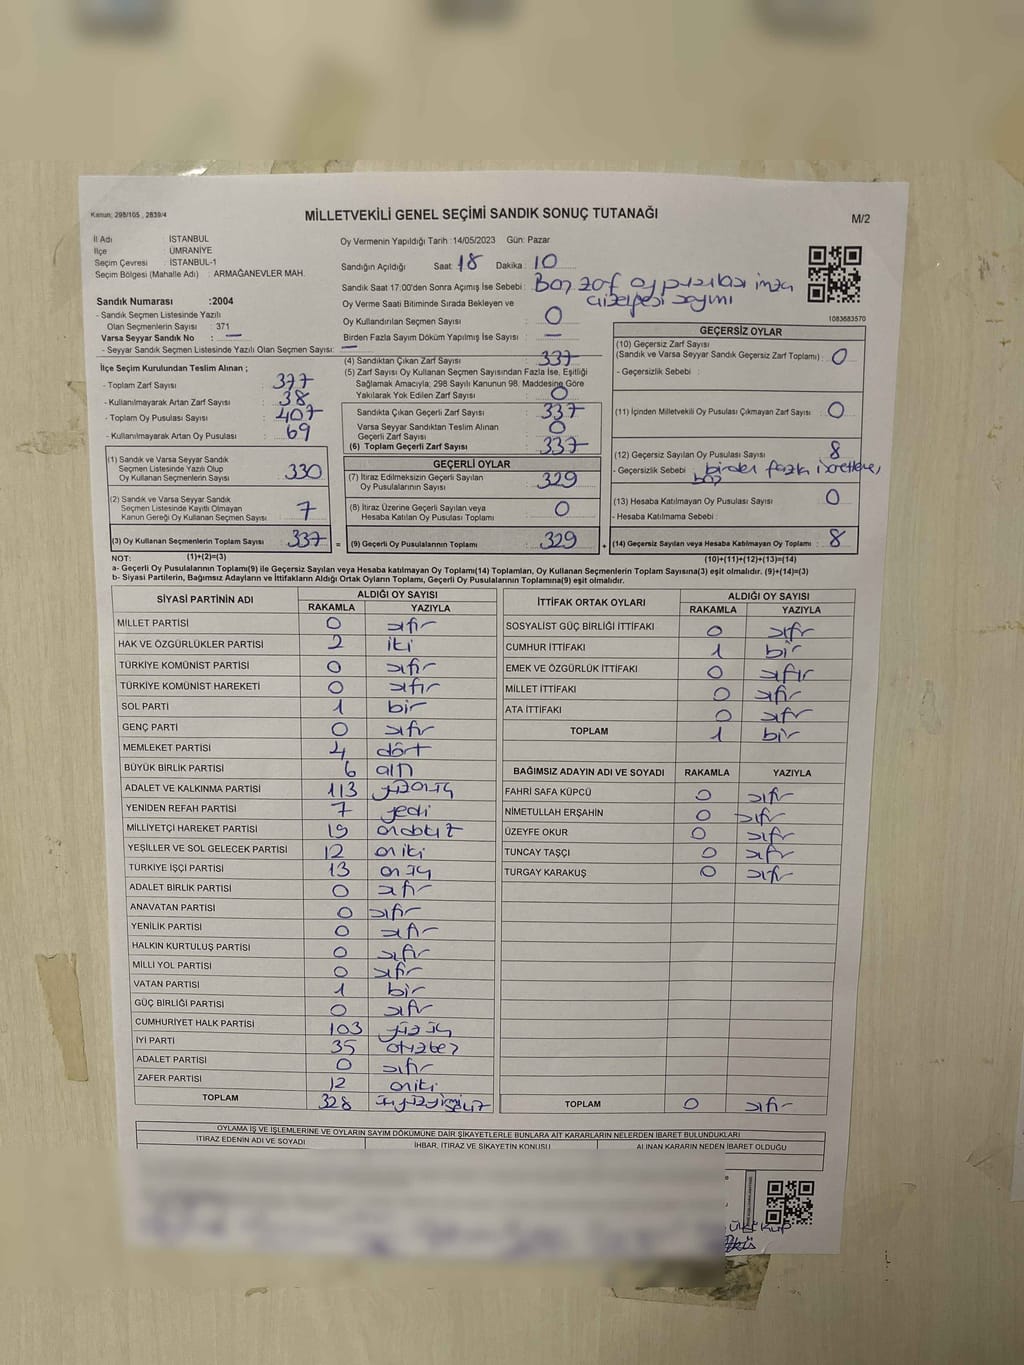 Kanun; 298/105 , 2839/4
MİLLETVEKİLİ GENEL SEÇİMİ SANDIK SONUÇ TUTANAĞI
M/2
İl Adı İSTANBUL
İlçe ÜMRANİYE
Seçim Çevresi : İSTANBUL-1
Seçim Bölgesi (Mahalle Adı) : ARMAĞANEVLER MAH.
Oy Vermenin Yapıldığı Tarih :14/05/2023 Gün: Pazar
Sandığın Açıldığı Saat: 18 Dakika : 10
Sandık Saat 17:00'den Sonra Açımış İse Sebebi : Boş zarf oy pusulası imza
çizelgesi sayımı
Oy Verme Saati Bitiminde Sırada Bekleyen ve
Oy Kullandırılan Seçmen Sayısı : 0
Birden Fazla Sayım Döküm Yapılmış İse Sayısı : —
1083683570
Sandık Numarası :2004
- Sandık Seçmen Listesinde Yazılı
Olan Seçmenlerin Sayısı : 371
Varsa Seyyar Sandık No : —
- Seyyar Sandık Seçmen Listesinde Yazılı Olan Seçmen Sayısı: —
İlçe Seçim Kurulundan Teslim Alınan ;
- Toplam Zarf Sayısı : 377
- Kullanılmayarak Artan Zarf Sayısı : 38
- Toplam Oy Pusulası Sayısı : 407
- Kullanılmayarak Artan Oy Pusulası : 69
(1) Sandık ve Varsa Seyyar Sandık
Seçmen Listesinde Yazılı Olup
Oy Kullanan Seçmenlerin Sayısı : 330
(2) Sandık ve Varsa Seyyar Sandık
Seçmen Listesinde Kayıtlı Olmayan
Kanun Gereği Oy Kullanan Seçmen Sayısı : 7
(3) Oy Kullanan Seçmenlerin Toplam Sayısı : 337
(4) Sandıktan Çıkan Zarf Sayısı : 337
(5) Zarf Sayısı Oy Kullanan Seçmen Sayısından Fazla İse, Eşitliği
Sağlamak Amacıyla; 298 Sayılı Kanunun 98. Maddesine Göre
Yakılarak Yok Edilen Zarf Sayısı : 0
Sandıkta Çıkan Geçerli Zarf Sayısı : 337
Varsa Seyyar Sandıktan Teslim Alınan
Geçerli Zarf Sayısı : 0
(6) Toplam Geçerli Zarf Sayısı : 337
GEÇERLİ OYLAR
(7) İtiraz Edilmeksizin Geçerli Sayılan
Oy Pusulalarının Sayısı : 329
(8) İtiraz Üzerine Geçerli Sayılan veya
Hesaba Katılan Oy Pusulası Toplamı : 0
= (9) Geçerli Oy Pusulalarının Toplamı : 329
GEÇERSİZ OYLAR
(10) Geçersiz Zarf Sayısı
(Sandık ve Varsa Seyyar Sandık Geçersiz Zarf Toplamı) : 0
- Geçersizlik Sebebi :
(11) İçinden Milletvekili Oy Pusulası Çıkmayan Zarf Sayısı : 0
(12) Geçersiz Sayılan Oy Pusulası Sayısı : 8
- Geçersizlik Sebebi : birden fazla
boş
(13) Hesaba Katılmayan Oy Pusulası Sayısı : 0
- Hesaba Katılmama Sebebi :
+ (14) Geçersiz Sayılan veya Hesaba Katılmayan Oy Toplamı : 8
NOT: (1)+(2)=(3) (10)+(11)+(12)+(13)=(14)
a- Geçerli Oy Pusulalarının Toplamı(9) ile Geçersiz Sayılan veya Hesaba Katılmayan Oy Toplamı(14) Toplamları, Oy Kullanan Seçmenlerin Toplam Sayısına(3) eşit olmalıdır. (9)+(14)=(3)
b- Siyasi Partilerin, Bağımsız Adayların ve İttifakların Aldığı Ortak Oyların Toplamı, Geçerli Oy Pusulalarının Toplamına(9) eşit olmalıdır.
SİYASİ PARTİNİN ADI ALDIĞI OY SAYISI
RAKAMLA YAZIYLA
MİLLET PARTİSİ 0 sıfır
HAK VE ÖZGÜRLÜKLER PARTİSİ 2 iki
TÜRKİYE KOMÜNİST PARTİSİ 0 sıfır
TÜRKİYE KOMÜNİST HAREKETİ 0 sıfır
SOL PARTİ 1 bir
GENÇ PARTİ 0 sıfır
MEMLEKET PARTİSİ 4 dört
BÜYÜK BİRLİK PARTİSİ 6 altı
ADALET VE KALKINMA PARTİSİ 113 yüzonüç
YENİDEN REFAH PARTİSİ 7 yedi
MİLLİYETÇİ HAREKET PARTİSİ 19 ondokuz
YEŞİLLER VE SOL GELECEK PARTİSİ 12 on iki
TÜRKİYE İŞÇİ PARTİSİ 13 on üç
ADALET BİRLİK PARTİSİ 0 sıfır
ANAVATAN PARTİSİ 0 sıfır
YENİLİK PARTİSİ 0 sıfır
HALKIN KURTULUŞ PARTİSİ 0 sıfır
MİLLİ YOL PARTİSİ 0 sıfır
VATAN PARTİSİ 1 bir
GÜÇ BİRLİĞİ PARTİSİ 0 sıfır
CUMHURİYET HALK PARTİSİ 103 yüz üç
İYİ PARTİ 35 otuzbeş
ADALET PARTİSİ 0 sıfır
ZAFER PARTİSİ 12 oniki
TOPLAM 328 üçyüzyirmisekiz
İTTİFAK ORTAK OYLARI ALDIĞI OY SAYISI
RAKAMLA YAZIYLA
SOSYALİST GÜÇ BİRLİĞİ İTTİFAKI 0 sıfır
CUMHUR İTTİFAKI 1 bir
EMEK VE ÖZGÜRLÜK İTTİFAKI 0 sıfır
MİLLET İTTİFAKI 0 sıfır
ATA İTTİFAKI 0 sıfır
TOPLAM 1 bir
BAĞIMSIZ ADAYIN ADI VE SOYADI RAKAMLA YAZIYLA
FAHRİ SAFA KÜPCÜ 0 sıfır
NİMETULLAH ERŞAHİN 0 sıfır
ÜZEYFE OKUR 0 sıfır
TUNCAY TAŞÇI 0 sıfır
TURGAY KARAKUŞ 0 sıfır
TOPLAM 0 sıfır
OYLAMA İŞ VE İŞLEMLERİNE VE OYLARIN SAYIM DÖKÜMÜNE DAİR ŞİKAYETLERLE BUNLARA AİT KARARLARIN NELERDEN İBARET BULUNDUKLARI
İTİRAZ EDENİN ADI VE SOYADI İHBAR, İTİRAZ VE ŞİKAYETİN KONUSU ALINAN KARARIN NEDEN İBARET OLDUĞU